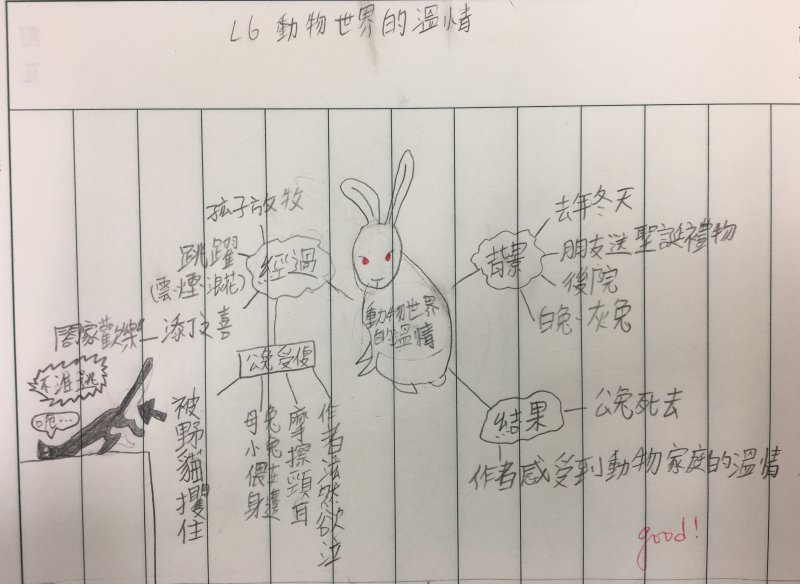 L6 動物世界的溫情
動物世界
的溫情
背景
去年冬天
朋友送聖誕禮物
後院
白兔、灰兔
經過
孩子放牧
跳躍
(雲煙、浪花)
添丁之喜
闔家歡樂
公兔受傷
作者泫然欲泣
摩擦頸耳
母兔
小兔
偎在
身邊
被野貓攫住
不准逃
呃…
結果
公兔死去
作者感受到動物家庭的溫情
good!